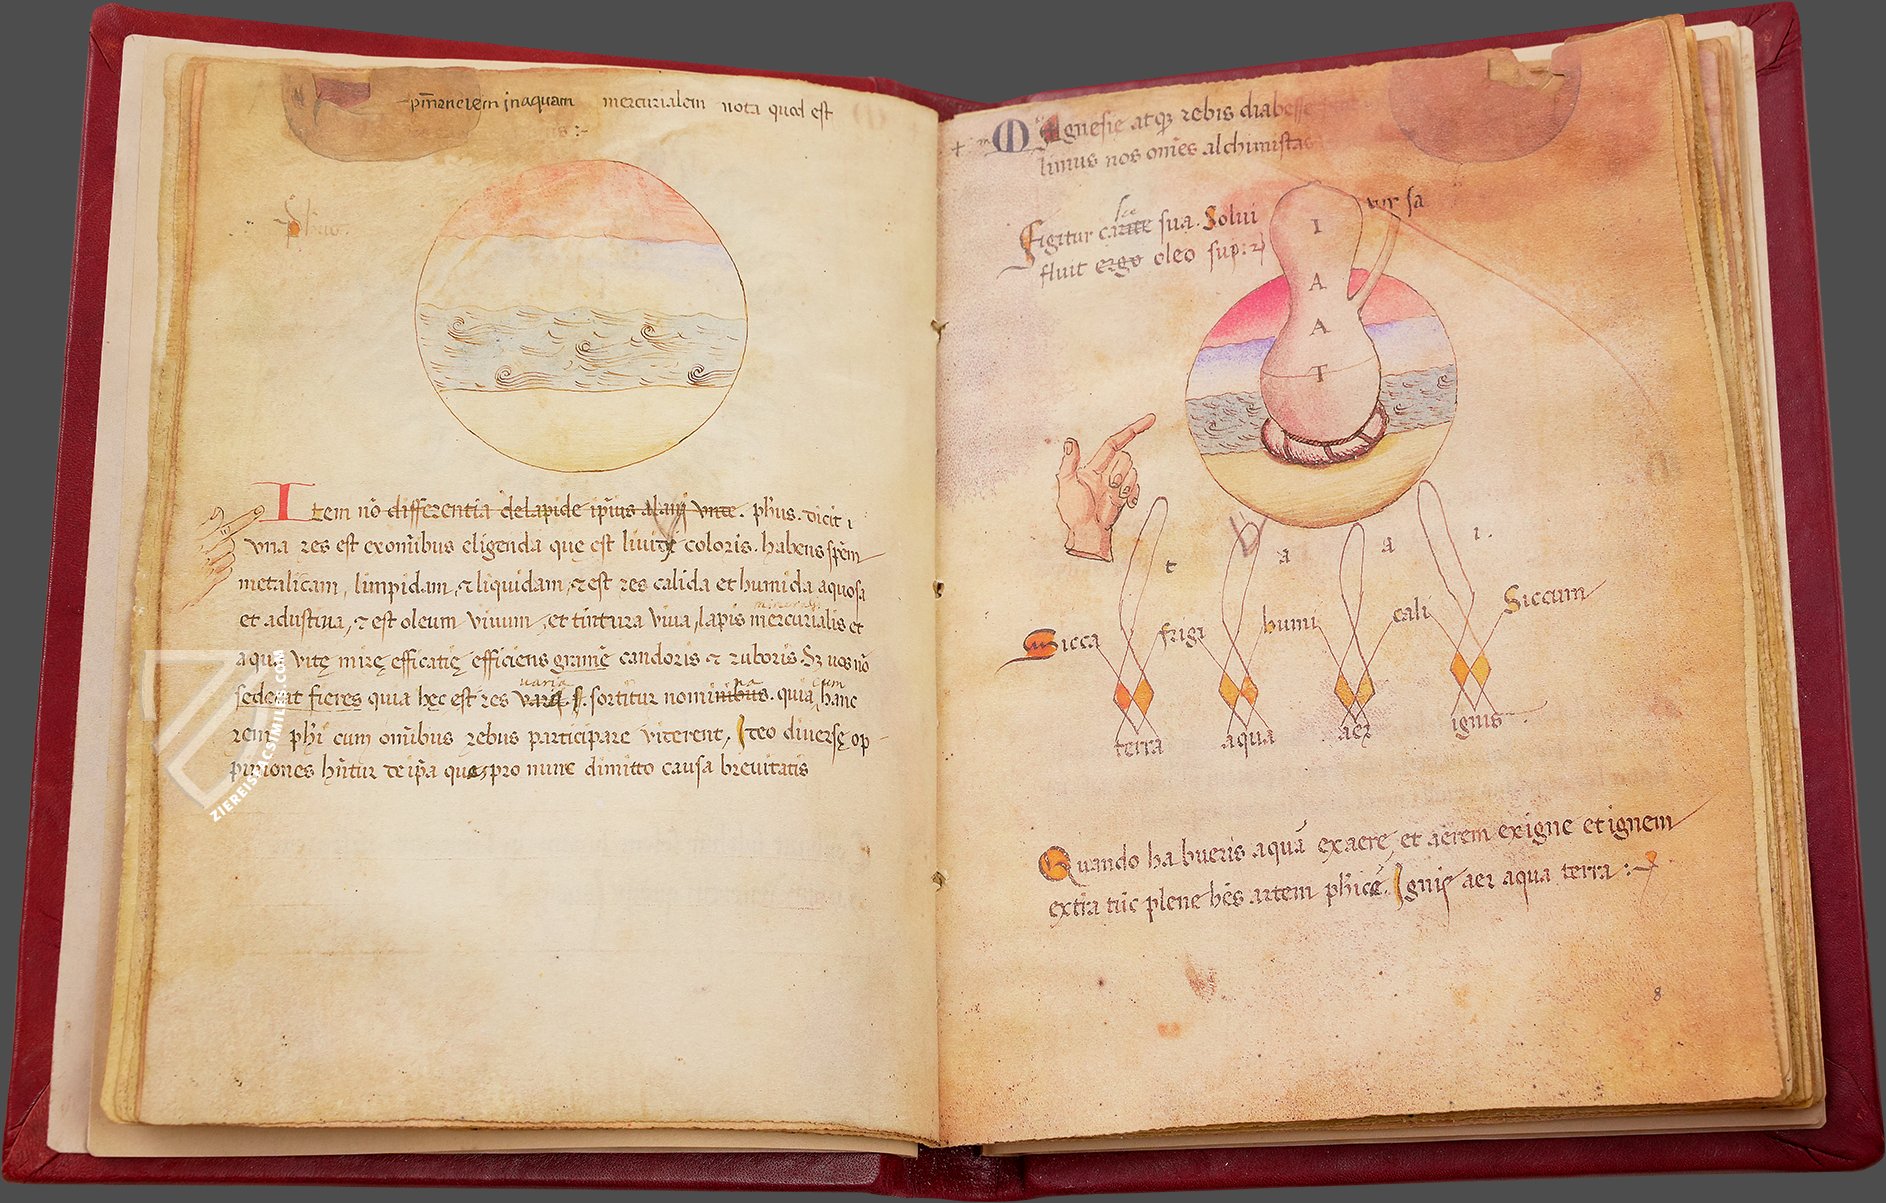 inaquam mercurialem nota quod est
Item nō differentia delapide ipīus alanj vnte. phus. dicit ı
vna res est exomībus eligenda que est liuide coloris. habens spēm
metalicam, limpidam, ⁊ liquidam, ⁊ est res calida et humida aquosa
et adustiua, ⁊ est oleum viuum, et tintura viua, lapis mercurialis et
aqua vitę mirę efficatię efficiens candoris ⁊ ruboris. Sz nos nō
uaria na cum
quia hęc est res sortitur nominibus. quia hanc
rem phi cum omībus rebus participare viderent, Ideo diuersę op
piniones hn̄tur de ip̄a pro nunc dimitto causa breuitatis
ZIEREISFACSIMILES.COM
+ Magnesie atqz rebis
limus nos om̄es alchimistas
Figitur carite sua. Solui vir sa
fluit ergo oleo sup:
I
A
A
T
t a a i.
Sicca frigi humi cali Siccum
terra aqua aer ignis
Quando habueris aquā exaere, et aerem exigne et ignem
extra tūc plene hēs artem phicē. Ignis aer aqua terra :~
8